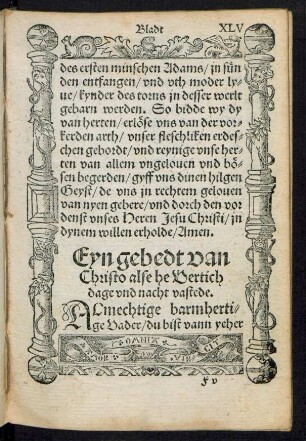 Bladt XLV
des ersten minschen Adams/ jn sün
den entfangen/ vnd vth moder ly
ue/ kynder des torns jn desser werlt
gebarn werden. So bidde wy dy
van herten/ erlöse vns van der vor-
kerden arth/ vnser fleschliken erdes-
chen gebordt/ vnd reynige vnse her-
ten van allem vngelouen vnd bö-
sen begerden/ gyff vns dinen hilgen
Geyst/ de vns jn rechtem gelouen
van nyen gebere/ vnd dorch den vor
denst vnses Heren Jesu Christi/ jn
dynem willen erholde/ Amen.
Eyn gebedt van
Christo alse he Vertich
dage vnd nacht vastede.
ALmechtige barmherti-
ge Vader/ du bist vann yeher
OMNIA
f v